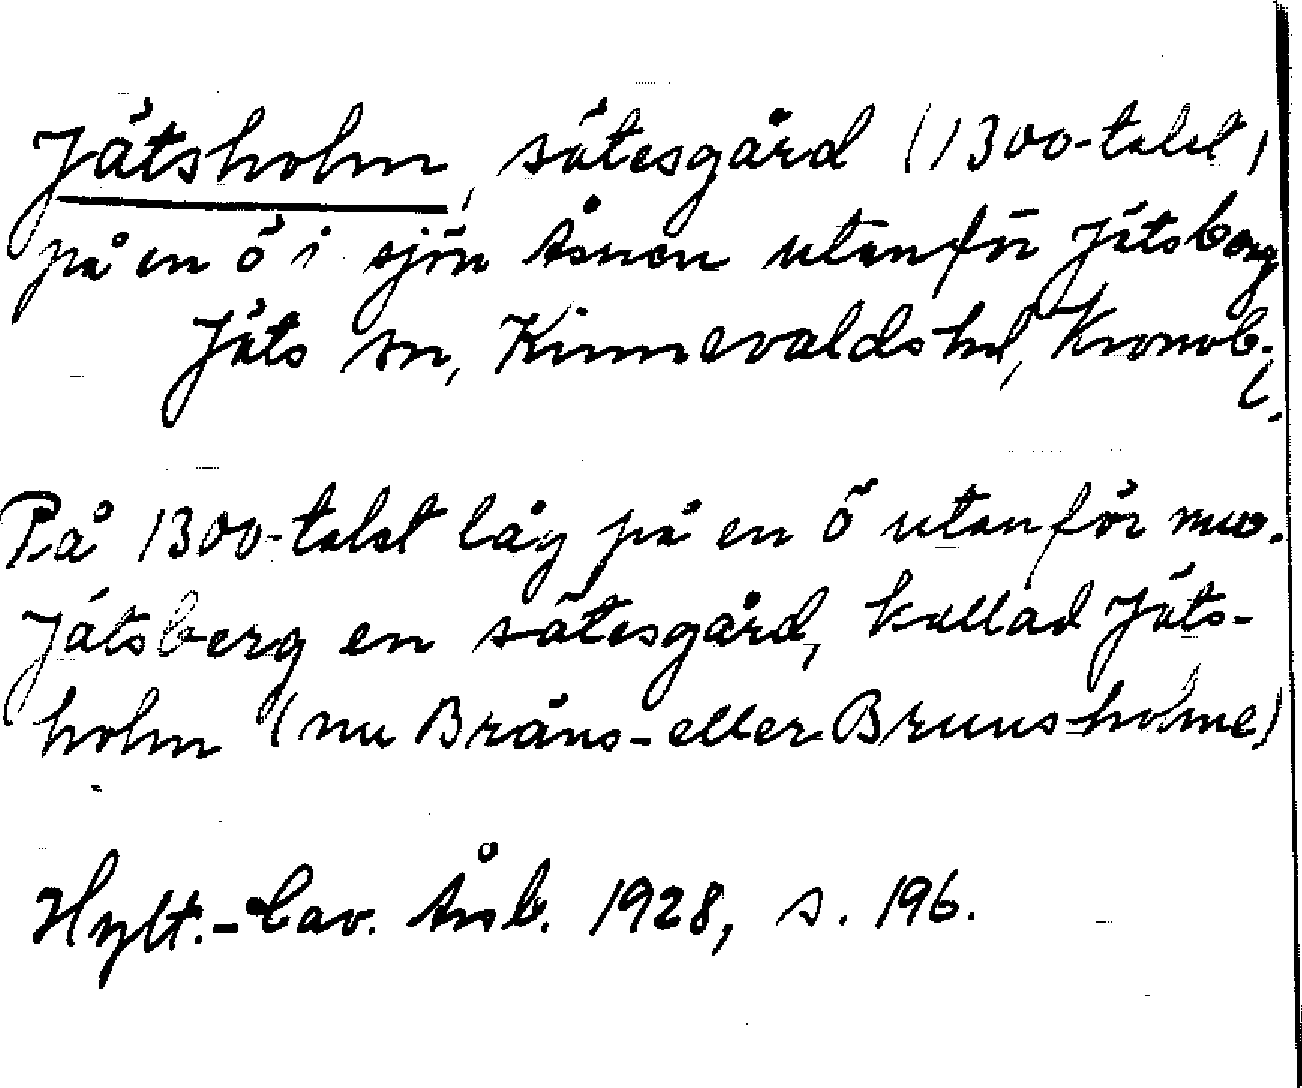 Jätsholm, sätesgård (1300-talet)
på en ö i sjön Åsnen utanför Jätsberg
Jäts sn, Kinnevalds hd, Kronob.
l.
På 1300-talet låg på en ö utanför nuv.
Jätsberg en sätesgård, kallad Jäts-
holm (nu Bräns- eller Bruns-holme)
Hylt.-Cav. Årsb. 1928, s. 196.